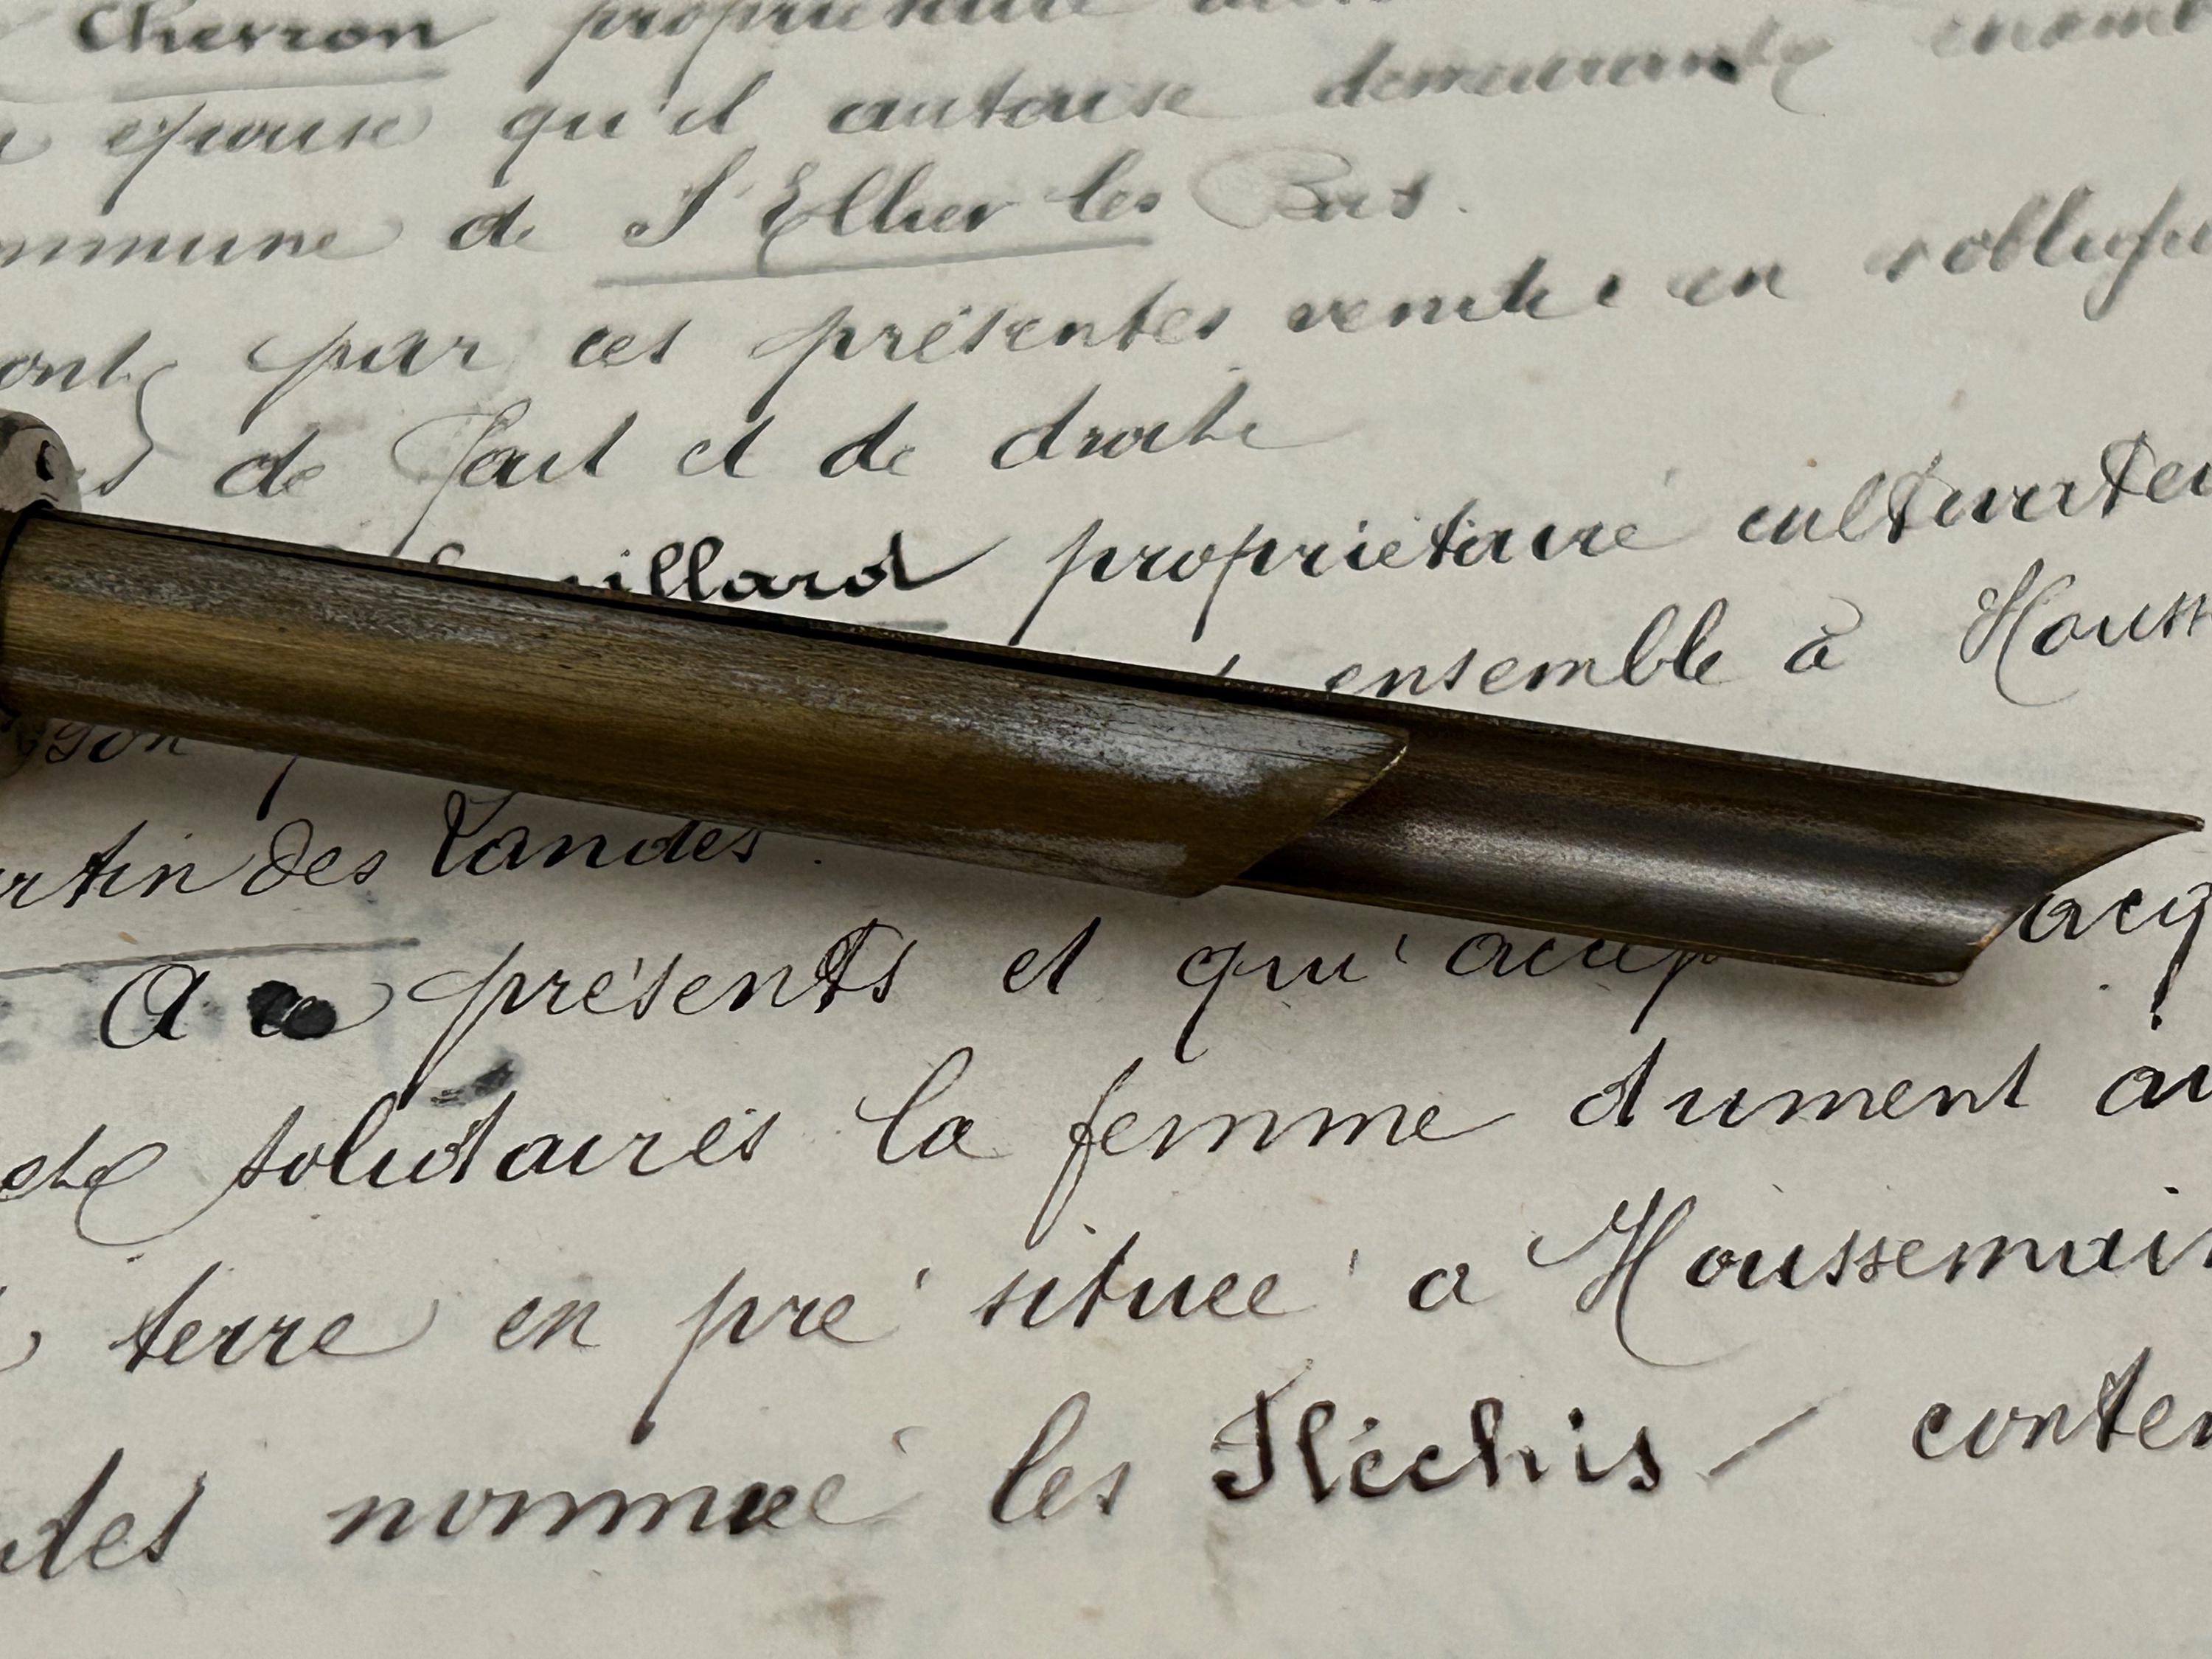 Cherron propriétaire
épouse qu'il autorise demeurant
de St Ellier les Bois.
ont par ces présentes vendu en s'obligeant
de fait et de droit
propriétaire cultivateu
ensemble à Houss
rtin des Landes.
A ce présents et qu'accep acq
solidaires la femme dument au
terre en pré située à Houssemai
des nommée les Fléchis conten